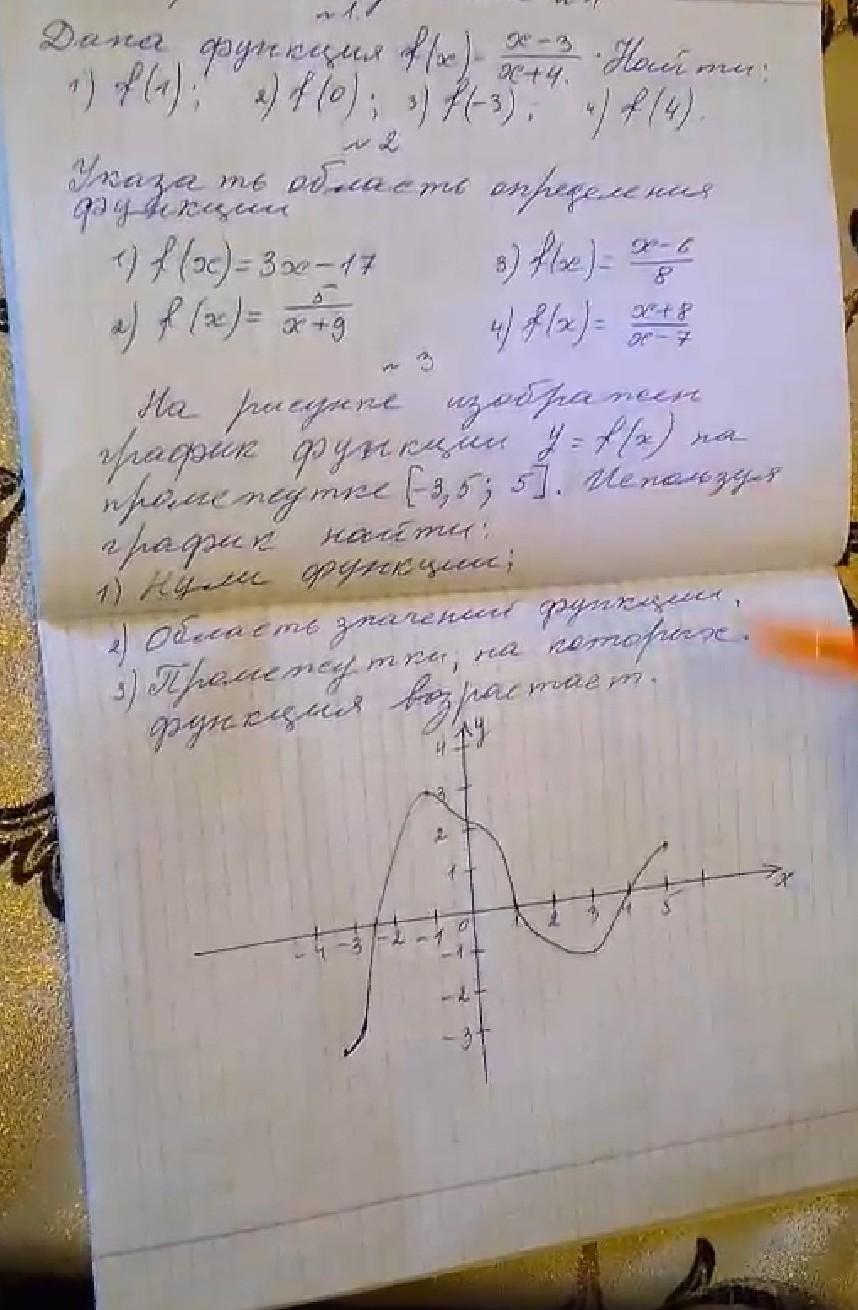 №1.
Дана функция f(x) = x-3/x+4. Найти:
1) f(1); 2) f(0); 3) f(-3); 4) f(4).
№2
Указать область определения
функции
1) f(x)=3x-17 3) f(x)= x-6/8
2) f(x)= 5/x+9 4) f(x)= x+8/x-7
№3
На рисунке изображен
график функции y=f(x) на
промежутке [-3,5; 5]. Используя
график найти:
1) Нули функции;
2) Область значений функции.
3) Промежутки, на которых
функция возрастает.
y
4
3
2
1
-4 -3 -2 -1 0 1 2 3 4 5 x
-1
-2
-3